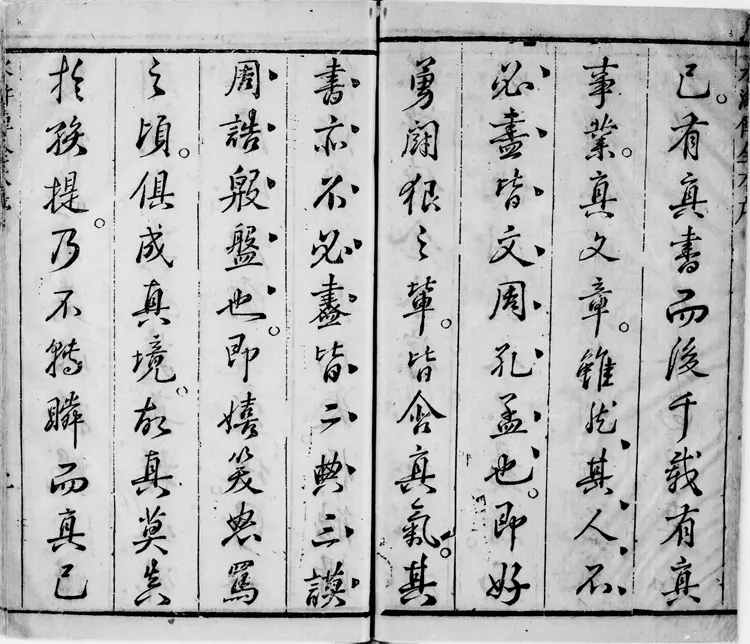 已。有真書而後千載有真
事業。真文章。雖然其人不
必盡皆文周孔孟也。即好
勇鬪狠之輩。皆含真氣。其
書亦不必盡皆二典三謨
周誥殷盤也。即嬉笑怒罵
之頃。俱成真境。故真莫真
於孩提。乃不轉瞬而真已